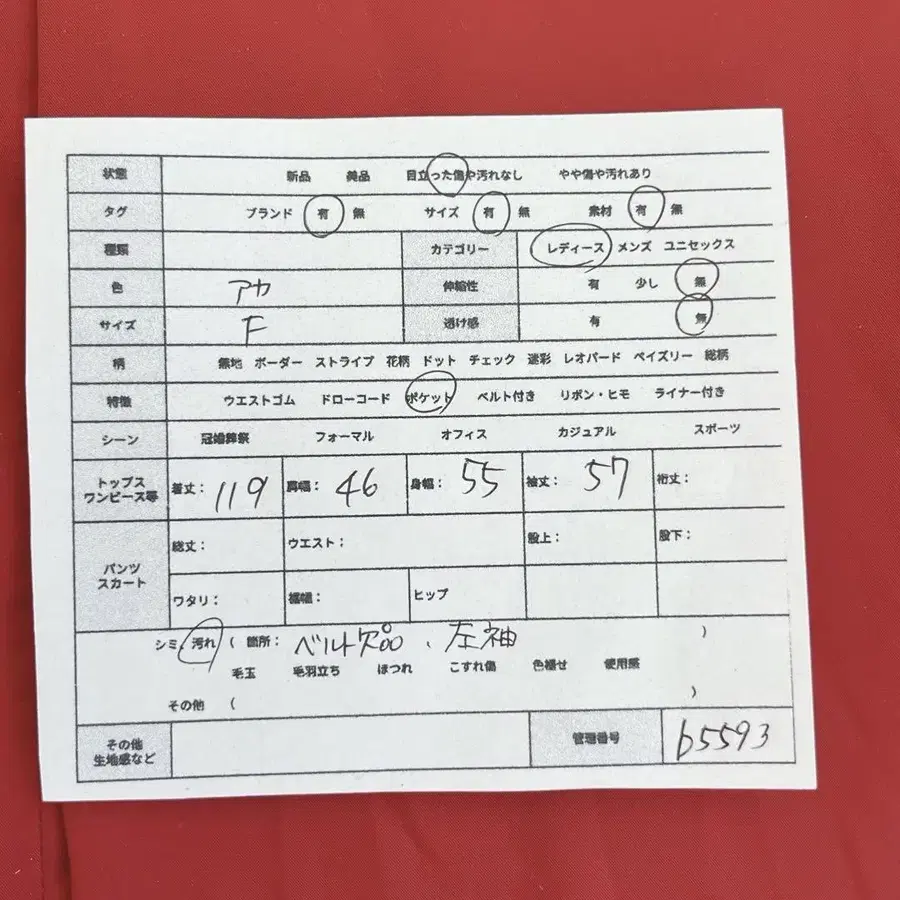 状態 新品 美品 目立った傷や汚れなし やや傷や汚れあり
タグ ブランド 有 無 サイズ 有 無 素材 有 無
種類 カテゴリー レディース メンズ ユニセックス
色 アカ 伸縮性 有 少し 無
サイズ F 透け感 有 無
柄 無地 ボーダー ストライプ 花柄 ドット チェック 迷彩 レオパード ペイズリー 総柄
特徴 ウエストゴム ドローコード ポケット ベルト付き リボン・ヒモ ライナー付き
シーン 冠婚葬祭 フォーマル オフィス カジュアル スポーツ
トップス
ワンピース等
着丈: 119 肩幅: 46 身幅: 55 袖丈: 57 裄丈:
パンツ
スカート
総丈: ウエスト: 股上: 股下:
ワタリ: 裾幅: ヒップ
シミ、汚れ ( 箇所: ベルト欠品、左袖 )
毛玉 毛羽立ち ほつれ こすれ傷 色褪せ 使用感
その他 ( )
その他
生地感など
管理番号 b5593